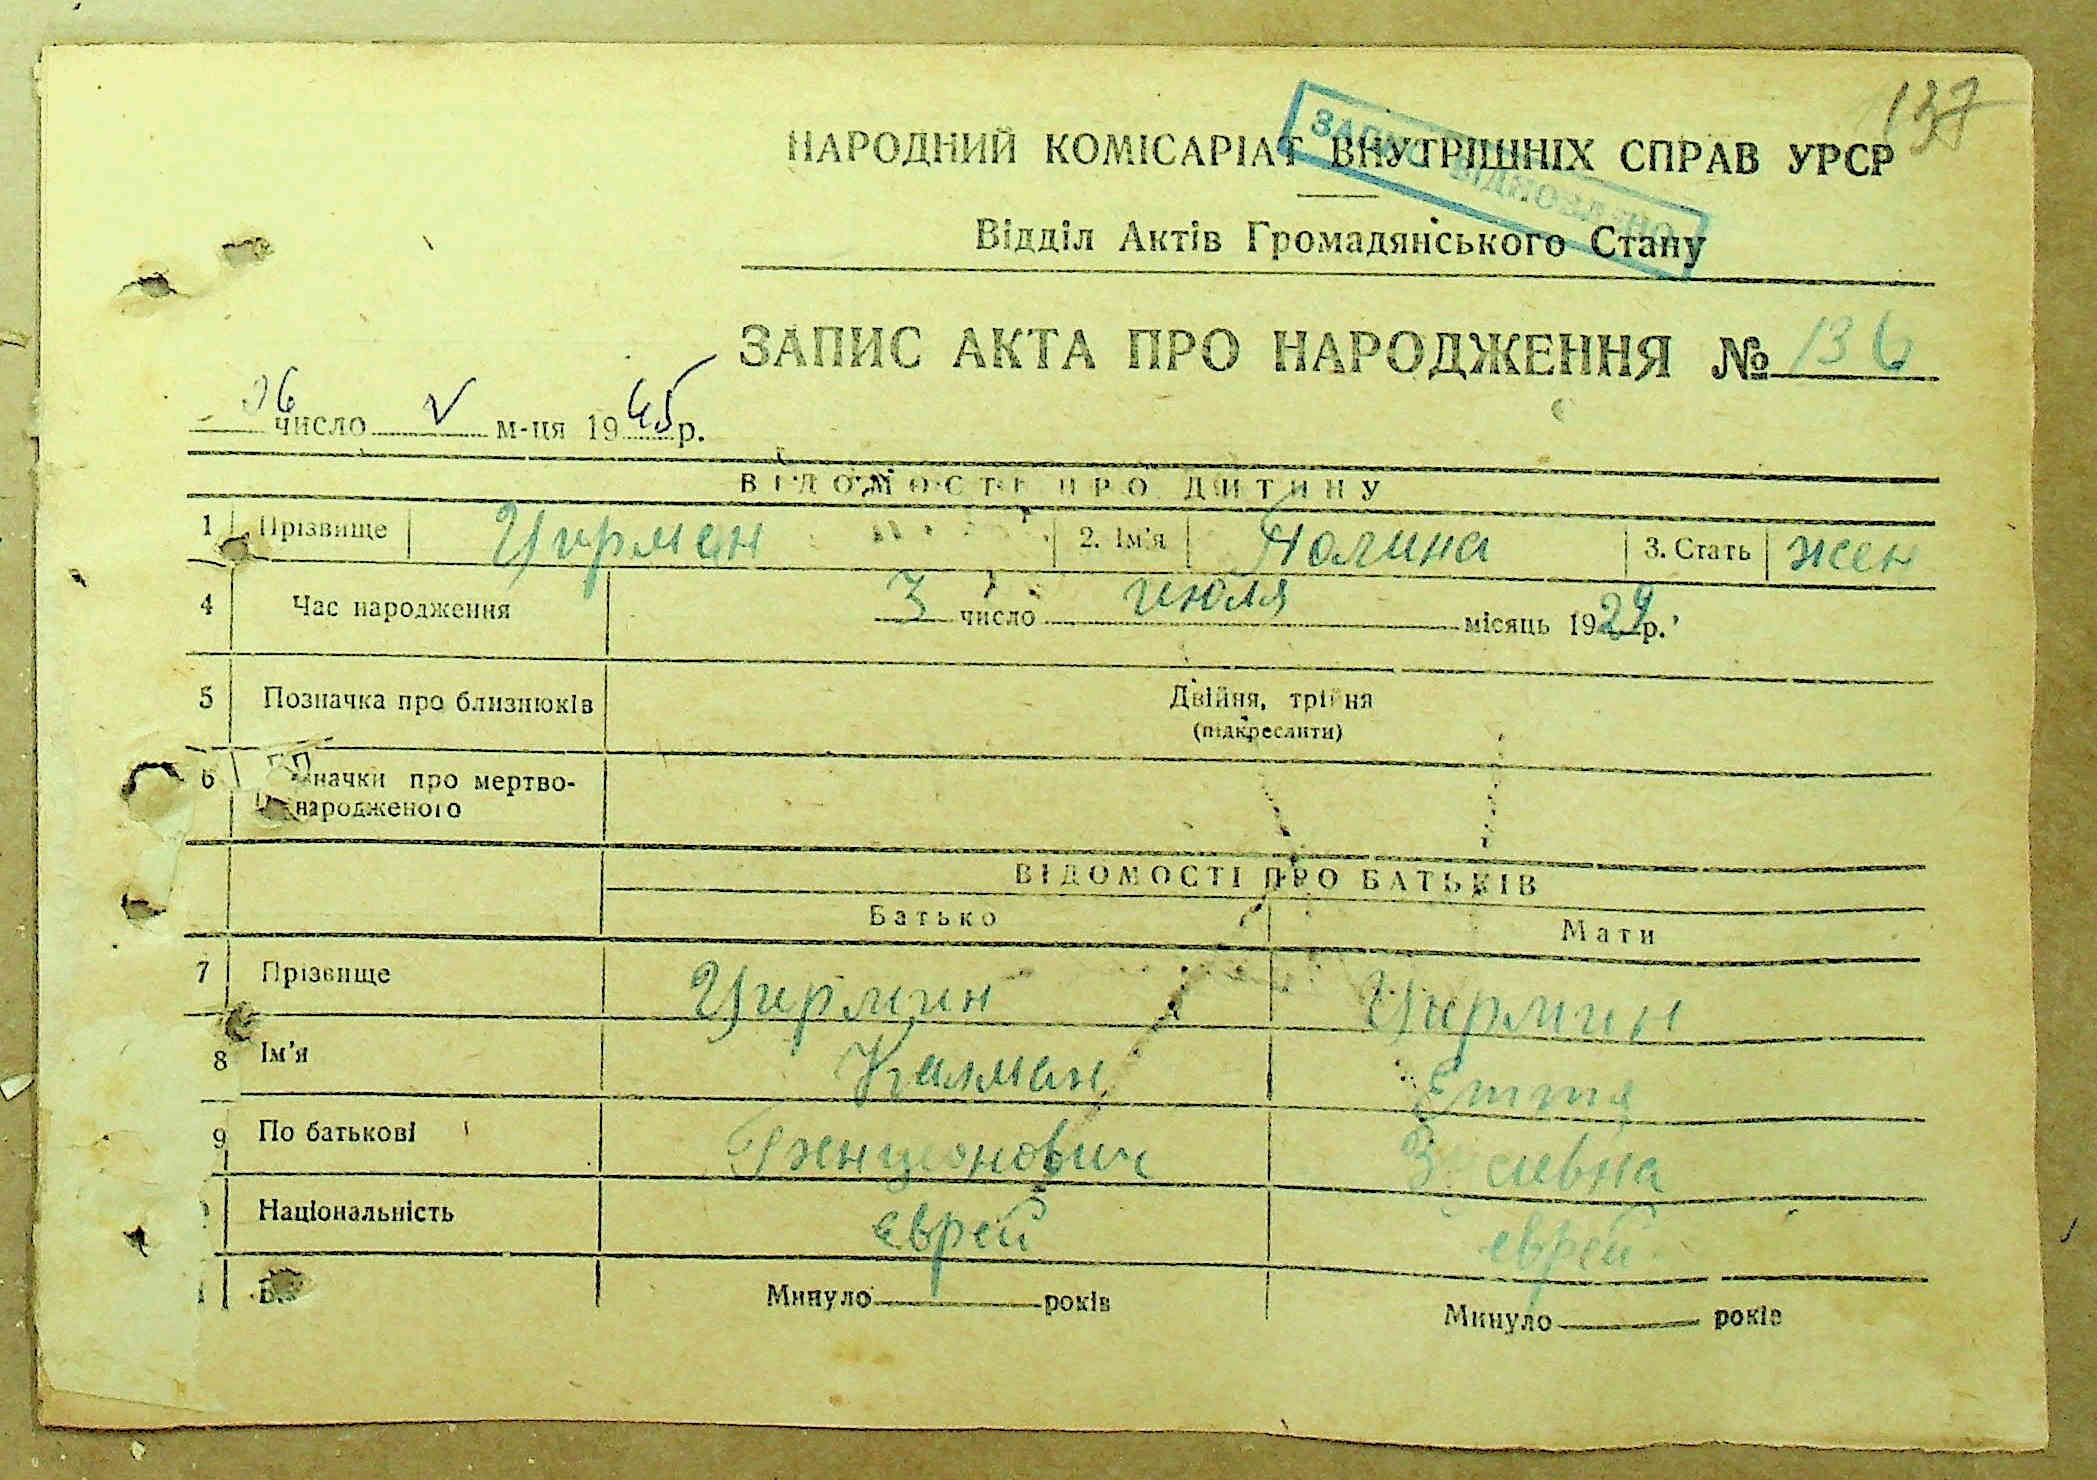 137
НАРОДНИЙ КОМІСАРІАТ ВНУТРІШНІХ СПРАВ УРСР
ЗАПИС ВІДНОВЛЕНО
Відділ Актів Громадянського Стану
ЗАПИС АКТА ПРО НАРОДЖЕННЯ № 136
число V м-ця 1945 р.
ВІДОМОСТІ ПРО ДИТИНУ
1 Прізвище Цирман 2. Ім'я Полина 3. Стать жен
4 Час народження 3 число июля місяць 1924 р.
5 Позначка про близнюків Двійня, трійня
(підкреслити)
6 значки про мертво-
народженого
ВІДОМОСТІ ПРО БАТЬКІВ
Батько Мати
7 Прізвище Цирман Цирман
8 Ім'я Калман Етта
9 По батькові Бенционович
Національність еврей еврей
Минуло років Минуло років